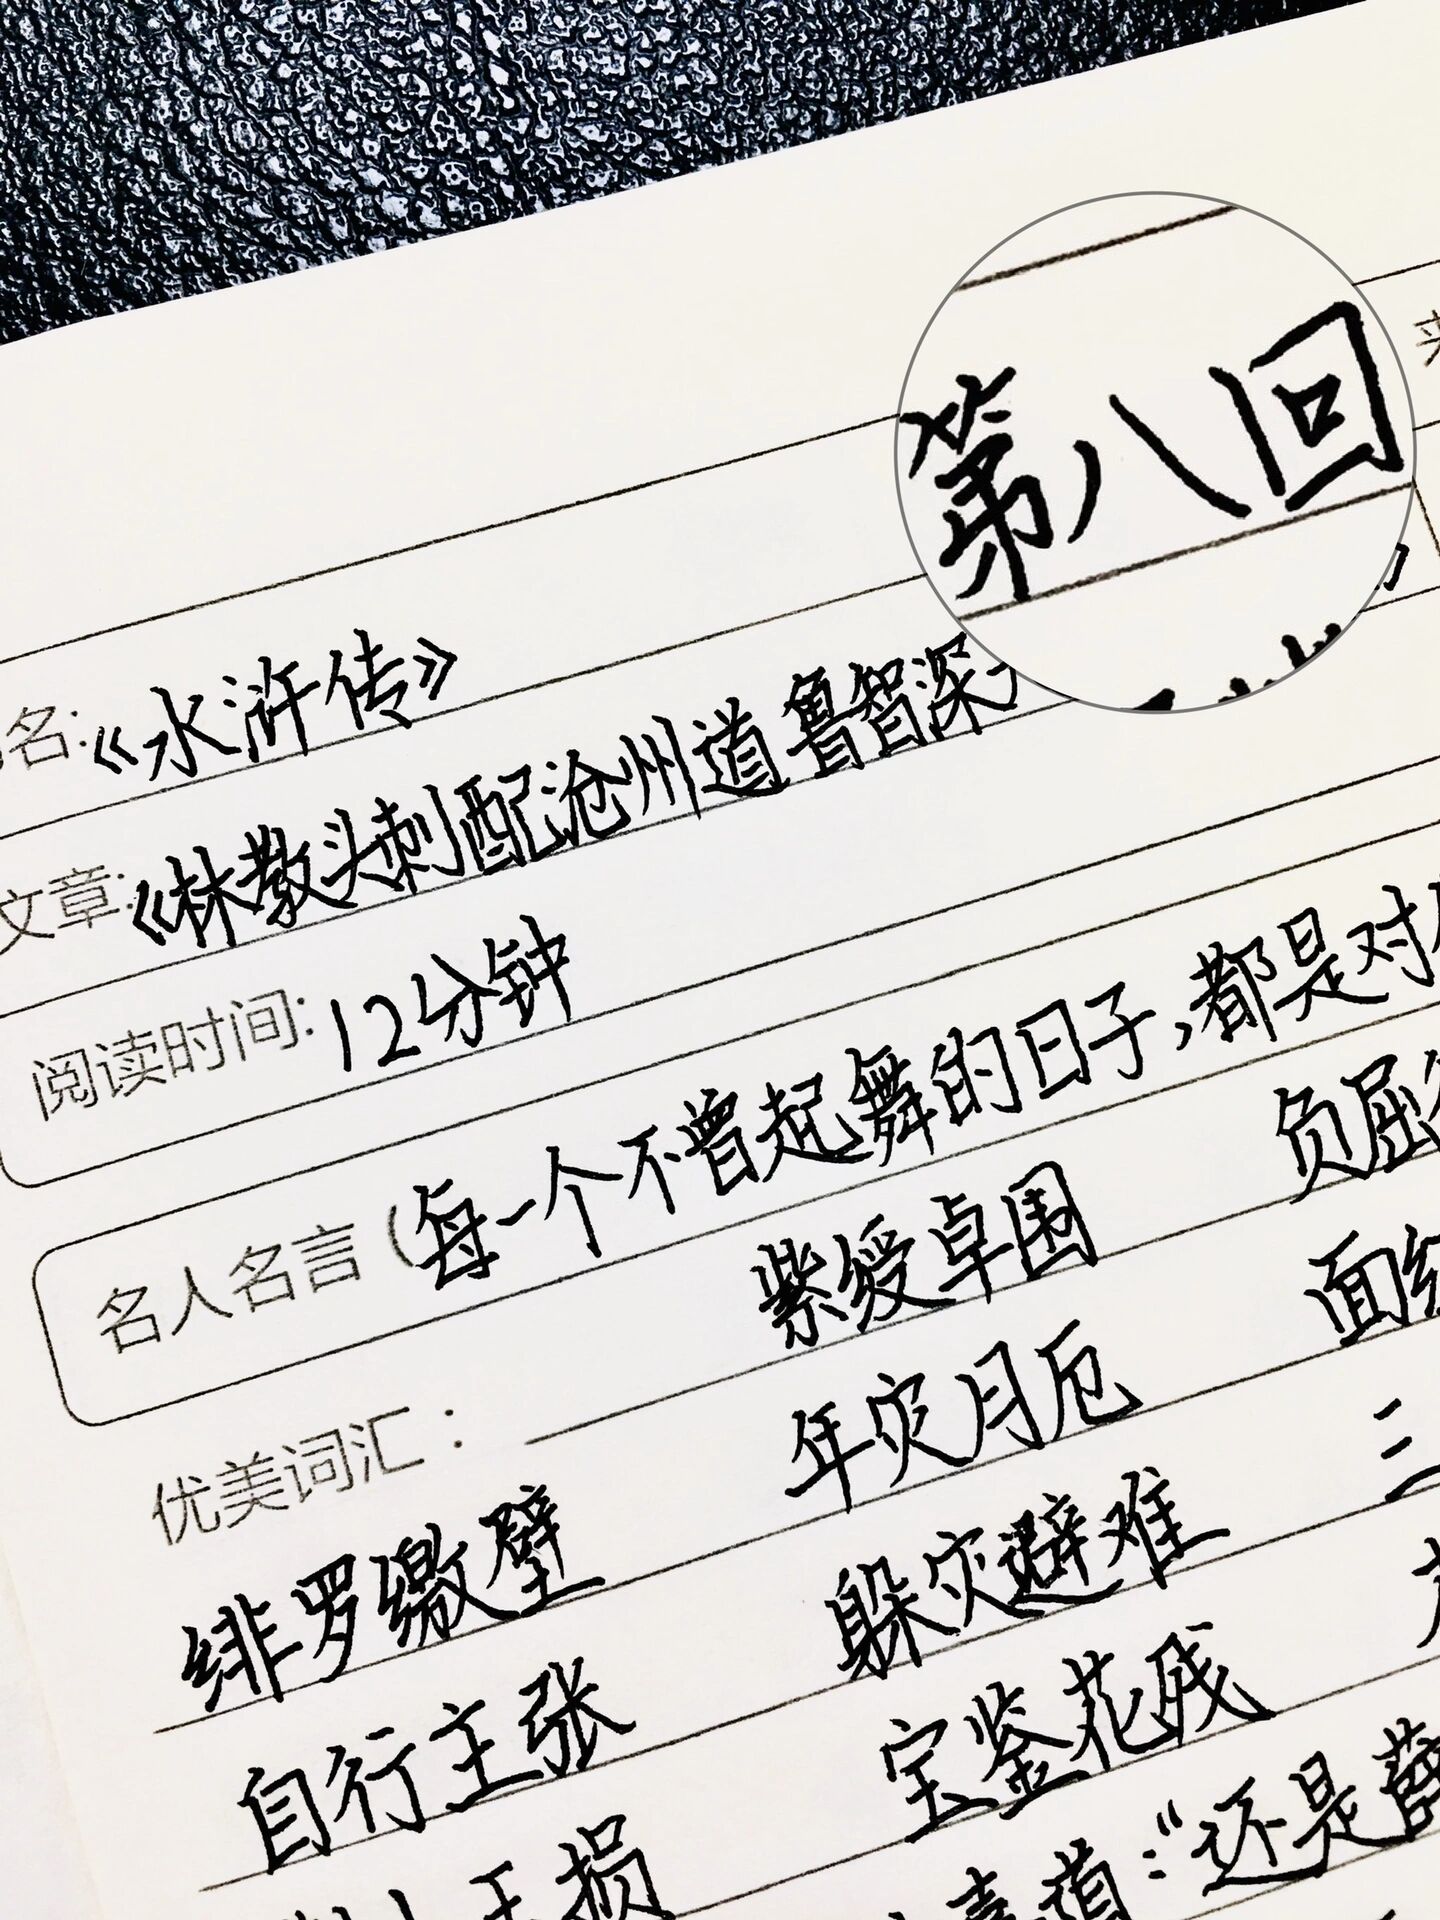 第八回
名:《水浒传》
文章:《林教头刺配沧州道 鲁智深
阅读时间:12分钟
名人名言(每一个不曾起舞的日子,都是对
优美词汇: 紫绶卓围 负屈
绯罗缴壁 年灾月厄 面红
自行主张 躲灾避难 三
玉损 宝鉴花残
道:“还是薛